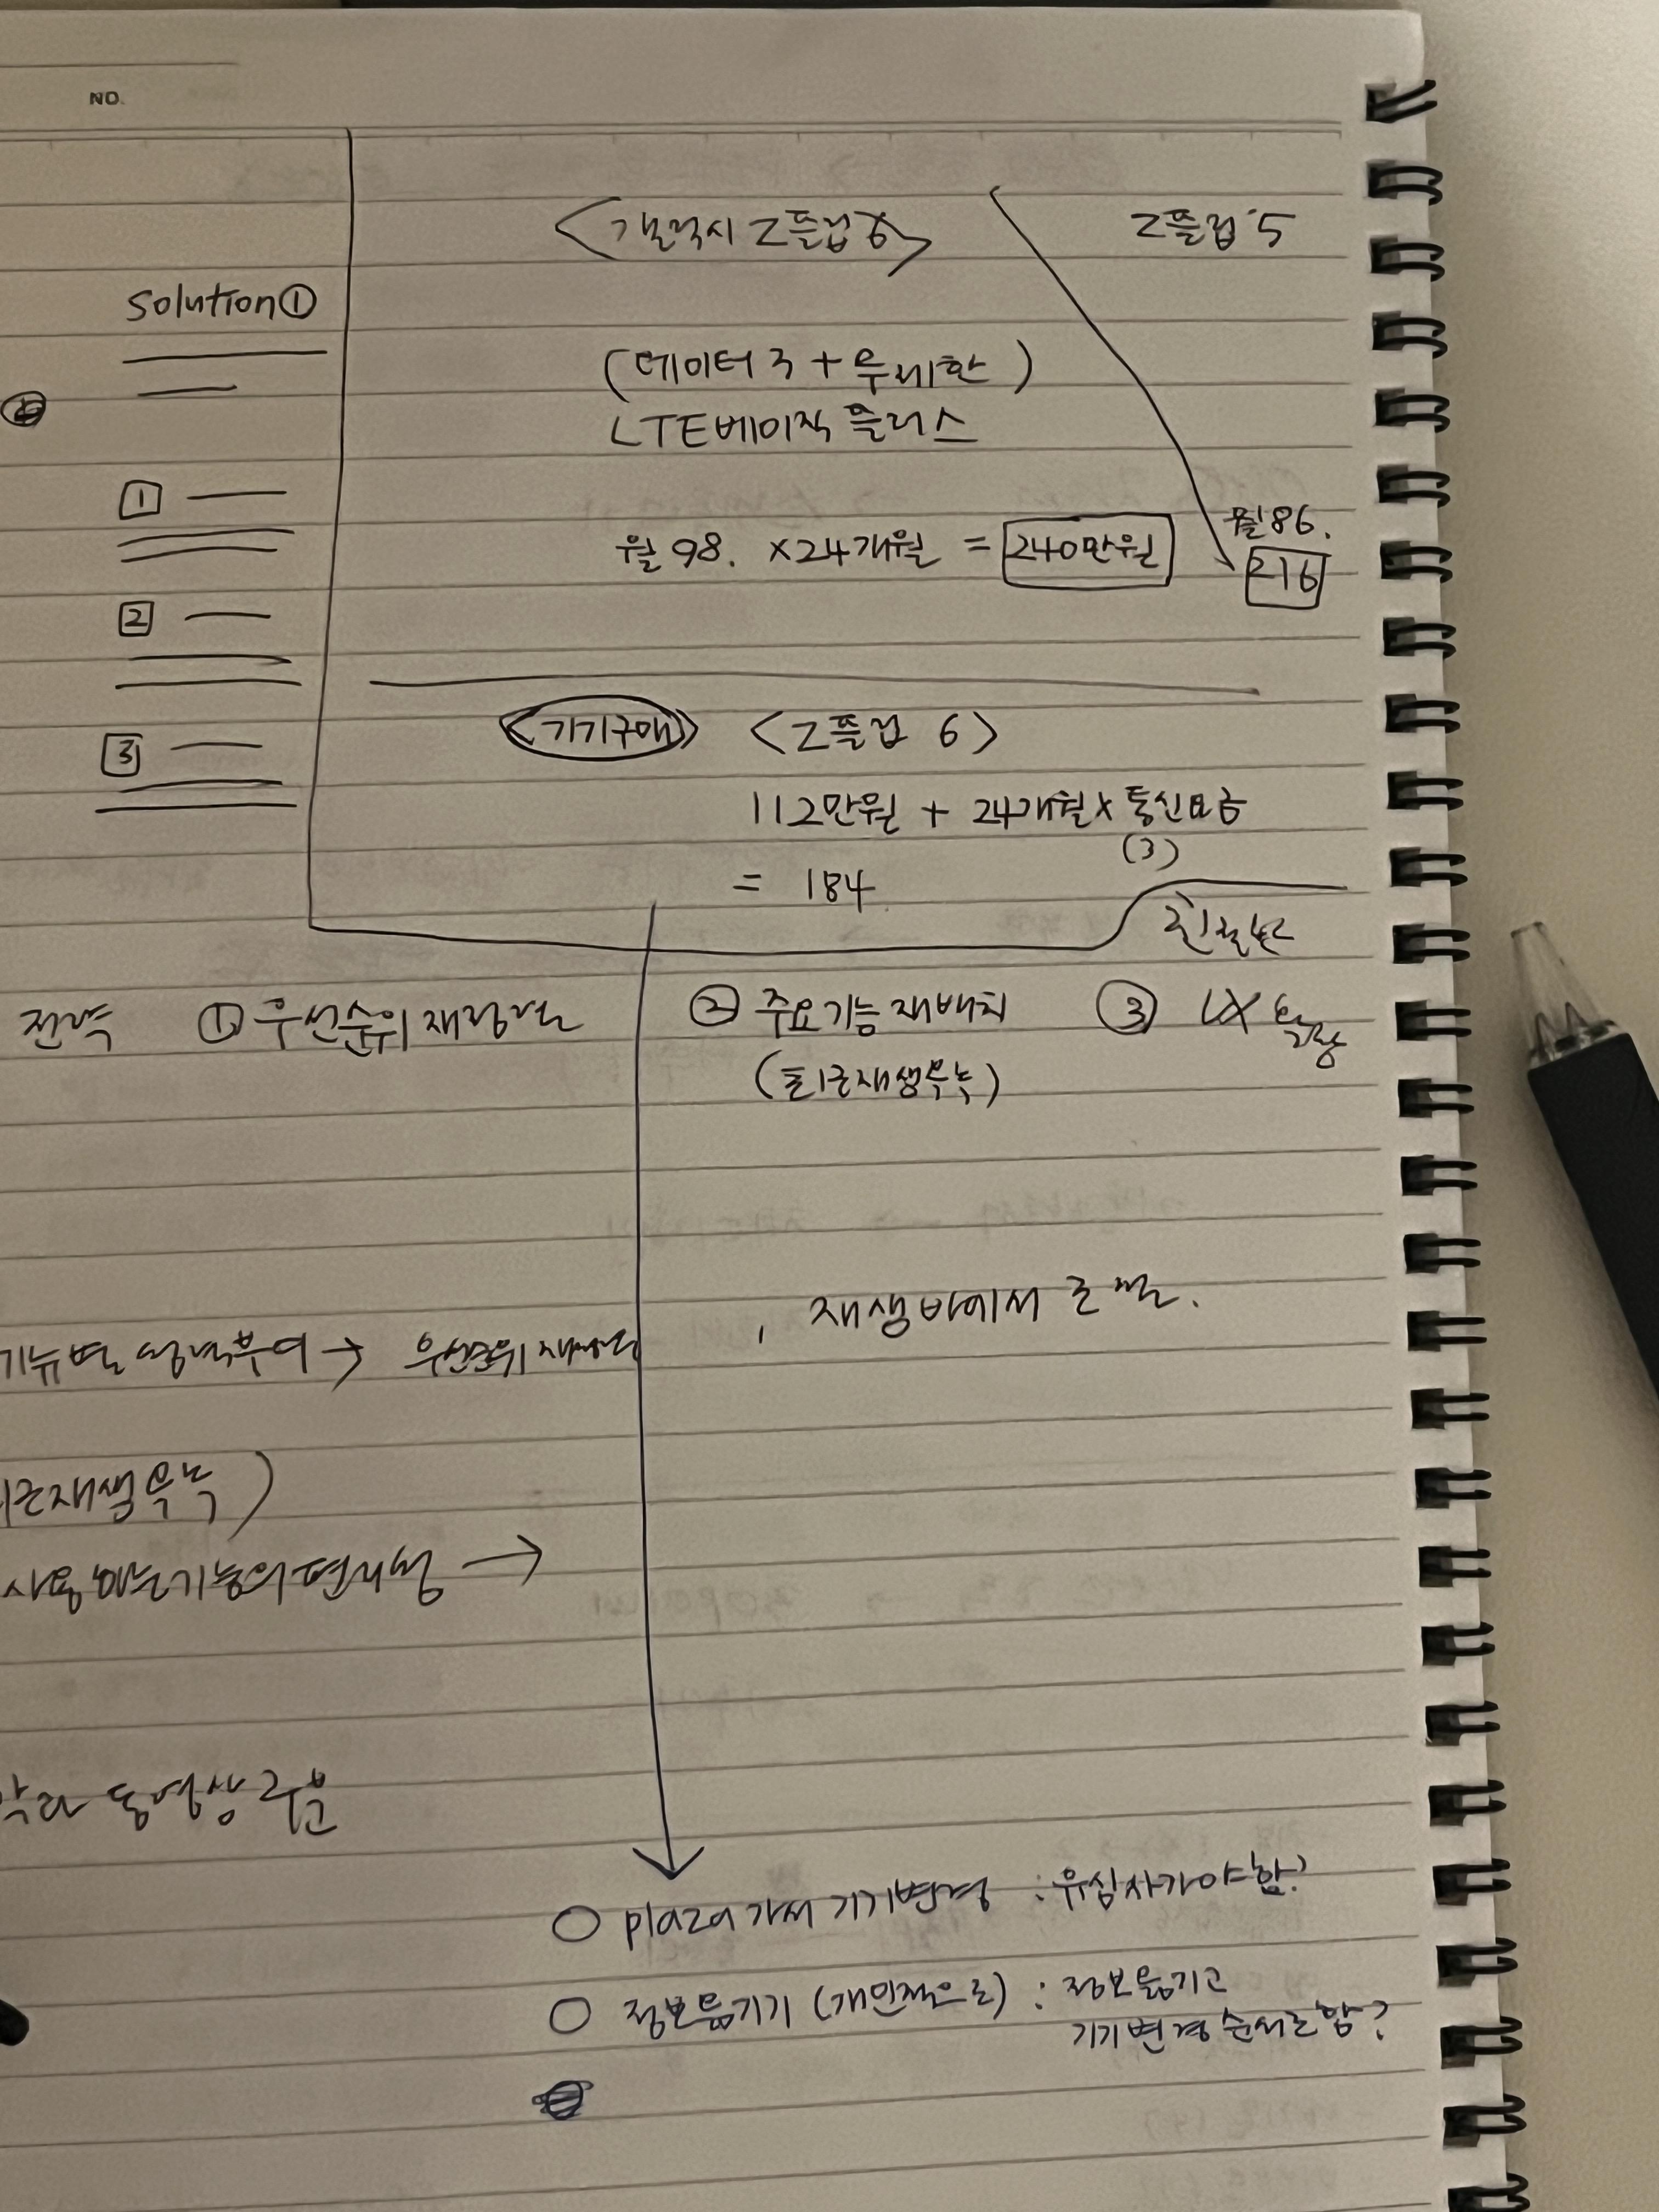 NO.
<갤럭시 Z플립 6>
Z플립 5
Solution①
(데이터 3 + 무제한)
LTE베이직 플러스
월 98. ×24개월 = 240만원
월 86.
216
1
2
3
<기기구매> <Z플립 6>
112만원 + 24개월 × 통신요금
(3)
= 184
친절도
전략 ① 우선순위 재정렬
② 주요기능 재배치
③ UX
(최근재생목록)
재생바에서
부여 → 우선순위 재정렬
근재생목록)
사용하는 기능의 편의성 →
동영상 구분
○ plaza 가서 기기변경 : 유심사가야함?
○ 정보옮기기 (개인적으로) : 정보옮기고
기기변경 순서로함?